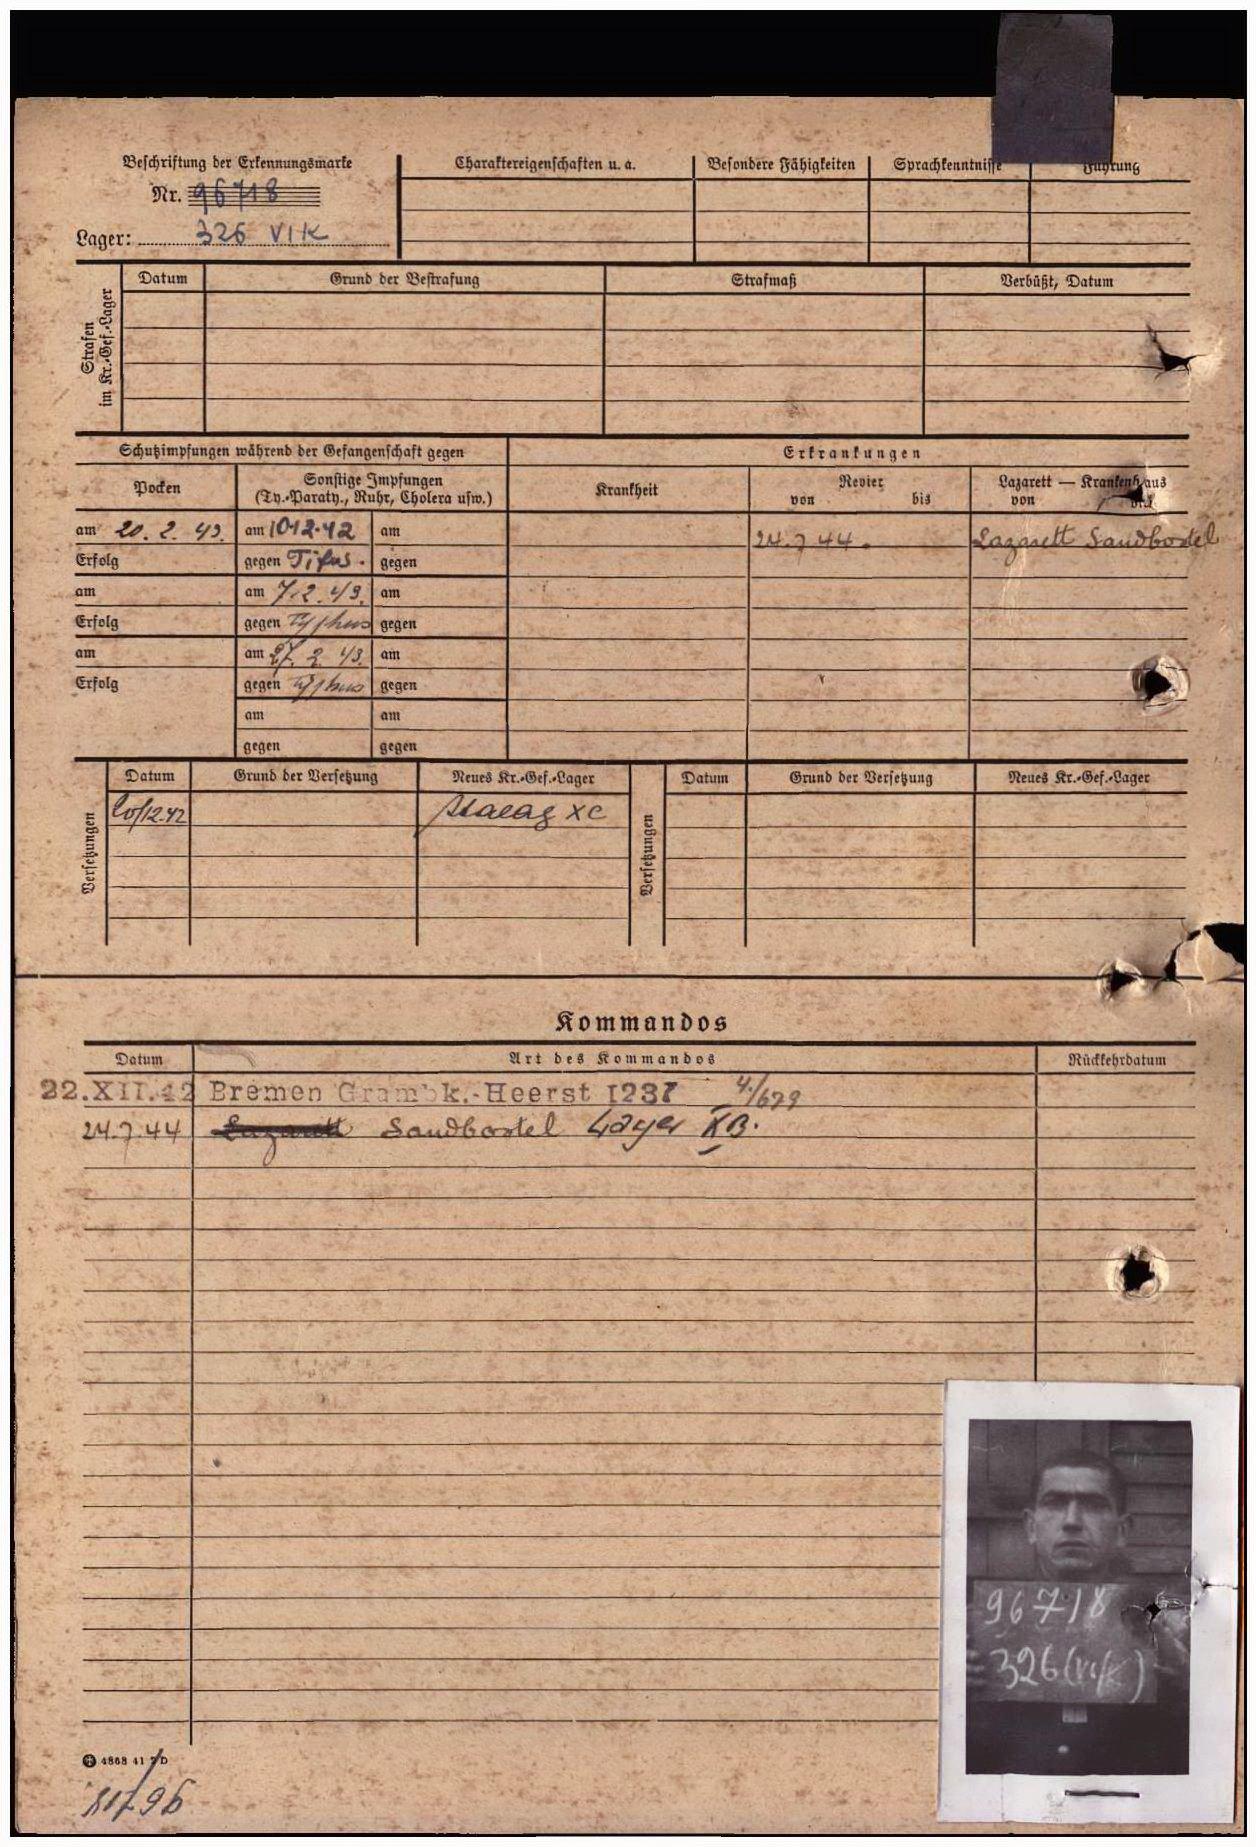 Beschriftung der Erkennungsmarke
Nr. 96718
Lager: 326 VI K
Charaktereigenschaften u. a.
Besondere Fähigkeiten
Sprachkenntnisse
Führung
Strafen im Kr.-Gef.-Lager
Datum
Grund der Bestrafung
Strafmaß
Verbüßt, Datum
Schutzimpfungen während der Gefangenschaft gegen
Erkrankungen
Pocken
Sonstige Impfungen
(Ty.-Paraty., Ruhr, Cholera usw.)
Krankheit
Revier
von bis
Lazarett — Krankenhaus
von bis
am 20. 2. 43. am 10.12.42 am
24.7.44. Lazarett Sandbostel
Erfolg gegen Tifus. gegen
am am 7.2.43. am
Erfolg gegen Typhus gegen
am am 27. 2. 43. am
Erfolg gegen Typhus gegen
am am
gegen gegen
Versetzungen
Datum
Grund der Versetzung
Neues Kr.-Gef.-Lager
Versetzungen
Datum
Grund der Versetzung
Neues Kr.-Gef.-Lager
20/12.42 Stalag XC
Kommandos
Datum
Art des Kommandos
Rückkehrdatum
22.XII.42 Bremen Grambk.-Heerst 1237 4./679
24.7.44 Lazarett Sandbostel Lager XB.
96718
326 (VI/K)
4868 41 2 D